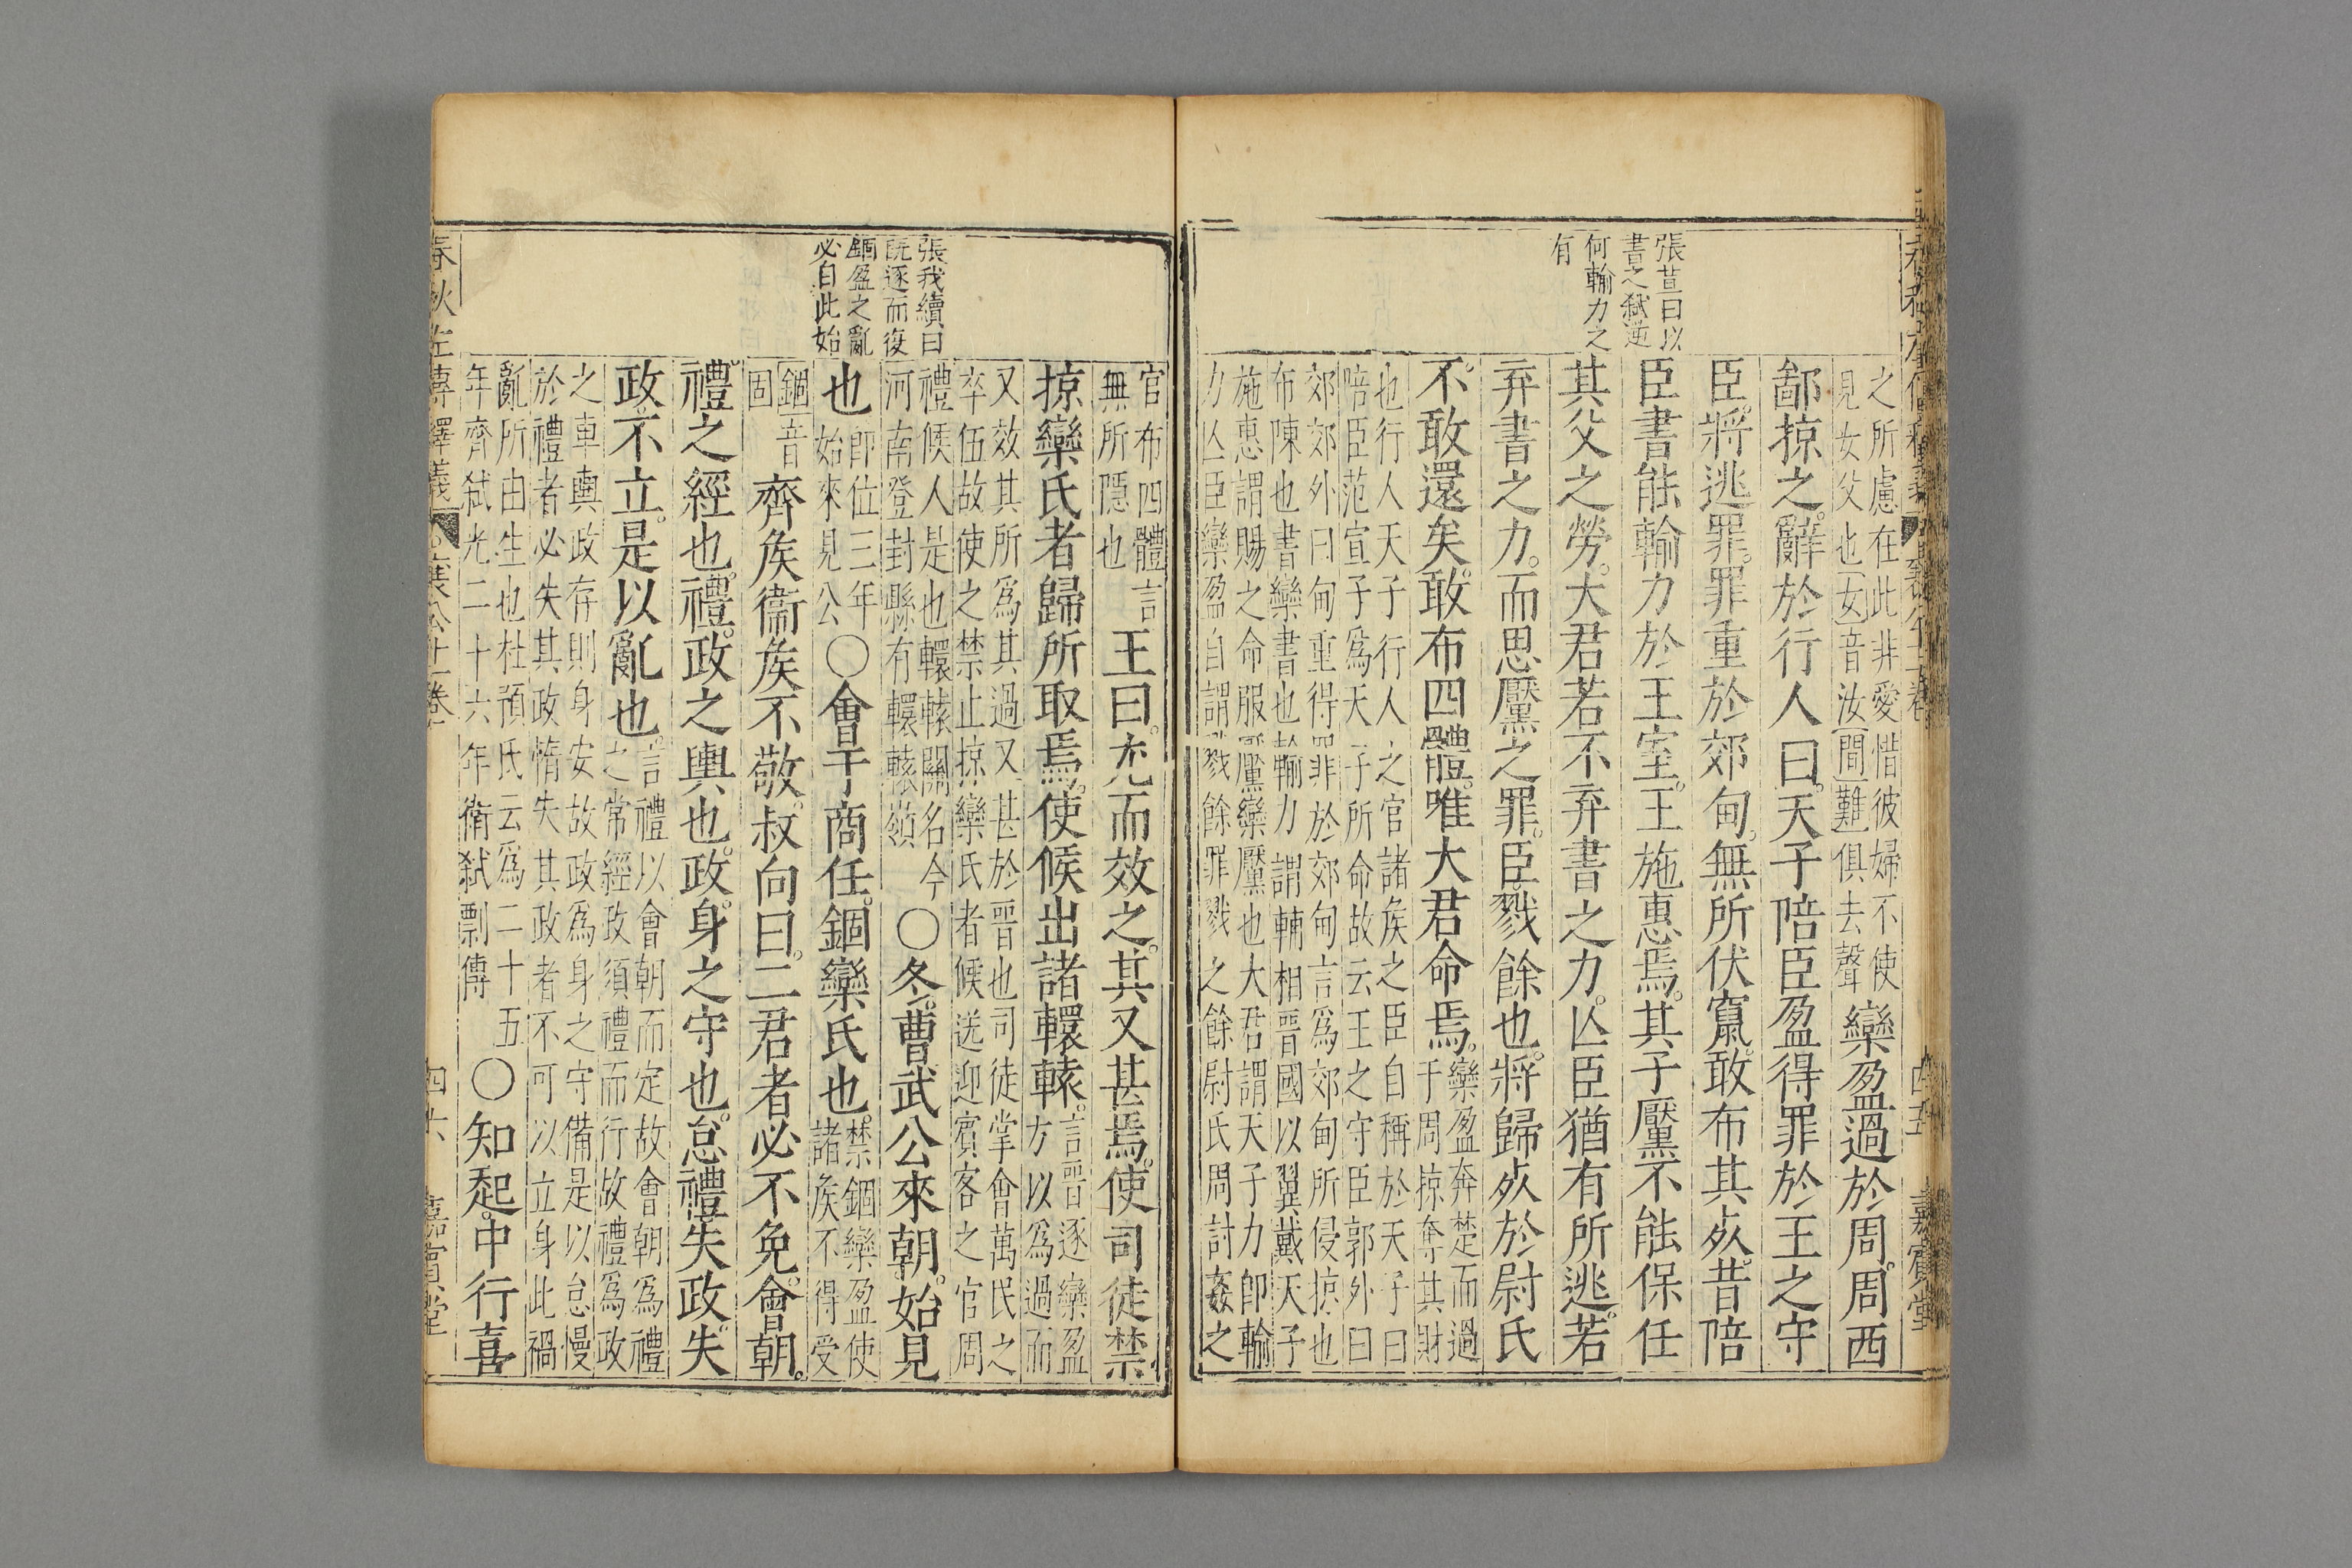 張萱曰以
書之弒逆
何輸力之
有
之所慮在此非愛惜彼婦不使
見女父也女音汝間難俱去聲
欒盈過於周周西
鄙掠之辭於行人曰天子陪臣盈得罪於王之守
臣將逃罪罪重於郊甸無所伏竄敢布其死昔陪
臣書能輸力於王室王施惠焉其子黶不能保任
其父之勞大君若不弃書之力亾臣猶有所逃若
弃書之力而思黶之罪臣戮餘也將歸死於尉氏
不敢還矣敢布四體唯大君命焉
欒盈奔楚而過
于周掠奪其財
也行人天子行人之官諸侯之臣自稱於天子曰
陪臣范宣子為天子所命故云王之守臣郭外曰
郊郊外曰甸重得罪於郊甸言為郊甸所侵掠也
布陳也書欒書也輸力謂輔相晉國以翼戴天子
施惠謂賜之命服黶欒黶也大君謂天子力卽輸
力亾臣欒盈自謂戮餘罪戮之餘尉氏周討姦之
張我續曰
既逐而復
錮盈之亂
必自此始
官布四體言
無所隱也
王曰尤而效之其又甚焉使司徒禁
掠欒氏者歸所取焉使候出諸轘轅
言晉逐欒盈
方以為過而
又效其所為其過又甚於晉也司徒掌會萬民之
卒伍故使之禁止掠欒氏者候送迎賓客之官周
禮候人是也轘轅關名今
河南登封縣有轘轅嶺
○冬曹武公來朝始見
也
卽位三年
始來見公
○會于商任錮欒氏也
禁錮欒盈使
諸侯不得受
錮音
固
齊侯衞侯不敬叔向曰二君者必不免會朝
禮之經也禮政之輿也政身之守也怠禮失政失
政不立是以亂也
言禮以會朝而定故會朝為禮
之常經政須禮而行故禮為政
之車輿政存則身安故政為身之守備是以怠慢
於禮者必失其政惰失其政者不可以立身此禍
亂所由生也杜預氏云為二十五
年齊弒光二十六年衛弒剽傳
○知起中行喜
春秋左傳釋義
襄公十一卷
四十六
嘉賓堂